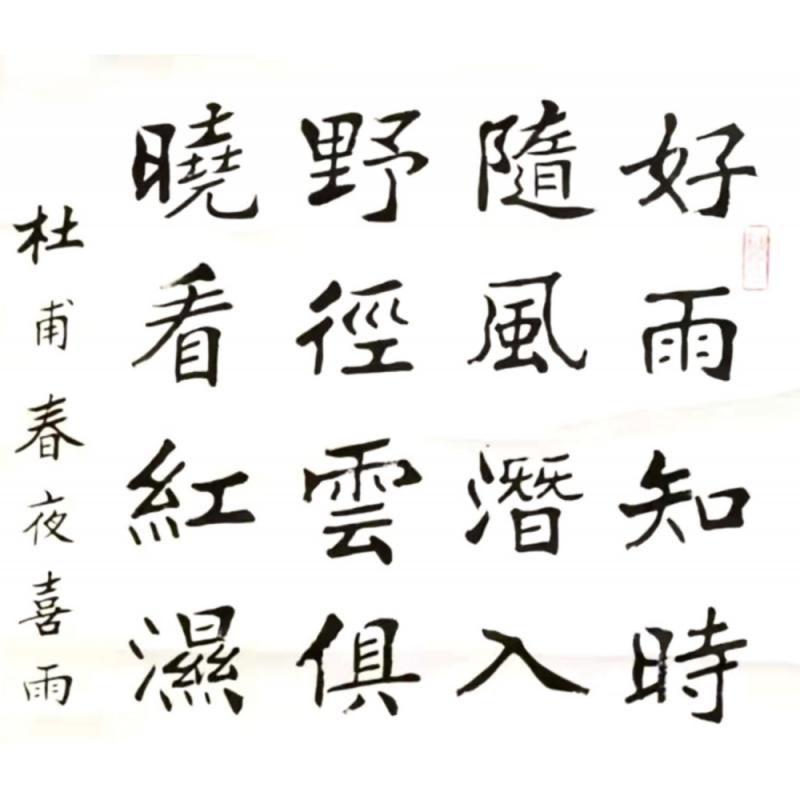 好雨知時
隨風潛入
野徑雲俱
曉看紅濕
杜甫春夜喜雨